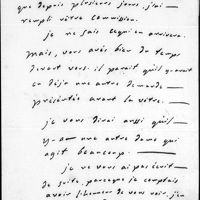 que depuis plusieurs jours j'ai
rempli vôtre commission.
je ne sais ce qui en arrivera.
Mais, vous avés bien du temps
devant vous. il parait qu'il y avait
déja une autre demande
présentée avant la vôtre.
je vous dirai aussi qu'il
y a une autre dame qui
agit beaucoup.
je ne vous ai pas écrit
de suite, parceque je comptais
avoir l'honneur de vous voir. j'en